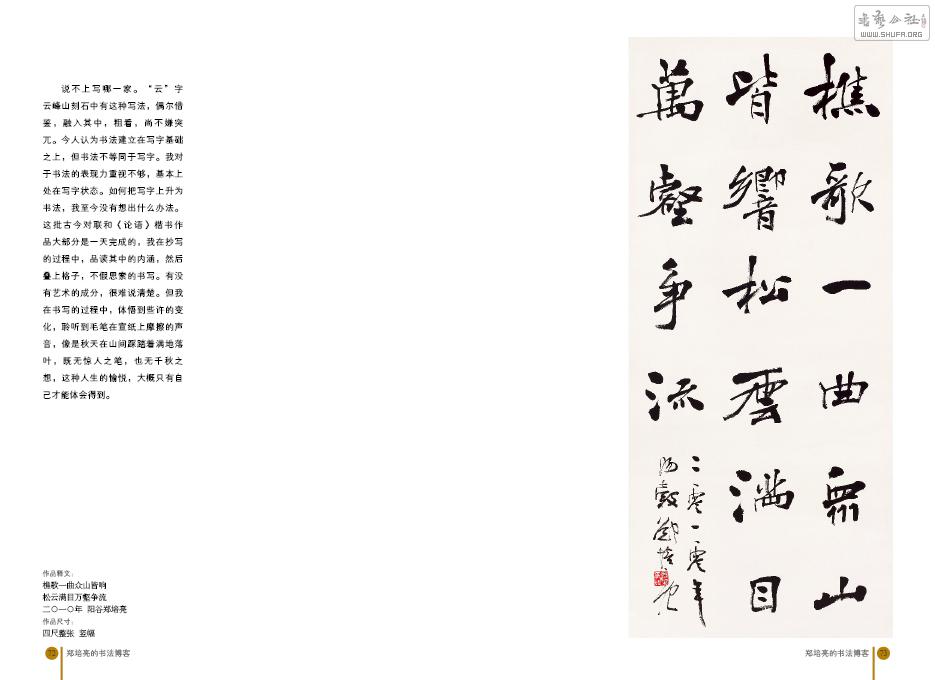 说不上写哪一家。“云”字
云峰山刻石中有这种写法，偶尔借
鉴，融入其中，粗看，尚不嫌突
兀。今人认为书法建立在写字基础
之上，但书法不等同于写字。我对
于书法的表现力重视不够，基本上
处在写字状态。如何把写字上升为
书法，我至今没有想出什么办法。
这批古今对联和《论语》楷书作
品大部分是一天完成的，我在抄写
的过程中，品读其中的内涵，然后
叠上格子，不假思索的书写。有没
有艺术的成分，很难说清楚。但我
在书写的过程中，体悟到些许的变
化，聆听到毛笔在宣纸上摩擦的声
音，像是秋天在山间踩踏着满地落
叶，既无惊人之笔，也无千秋之
想，这种人生的愉悦，大概只有自
己才能体会得到。
作品释文：
樵歌一曲众山皆响
松云满目万壑争流
二〇一〇年 阳谷郑培亮
作品尺寸：
四尺整张 竖幅
72 郑培亮的书法博客
书艺公社
WWW.SHUFA.ORG
樵歌一曲眾山
皆響松雲滿目
萬壑争流
二零一零年
陽穀鄭培亮
郑培亮的书法博客 73